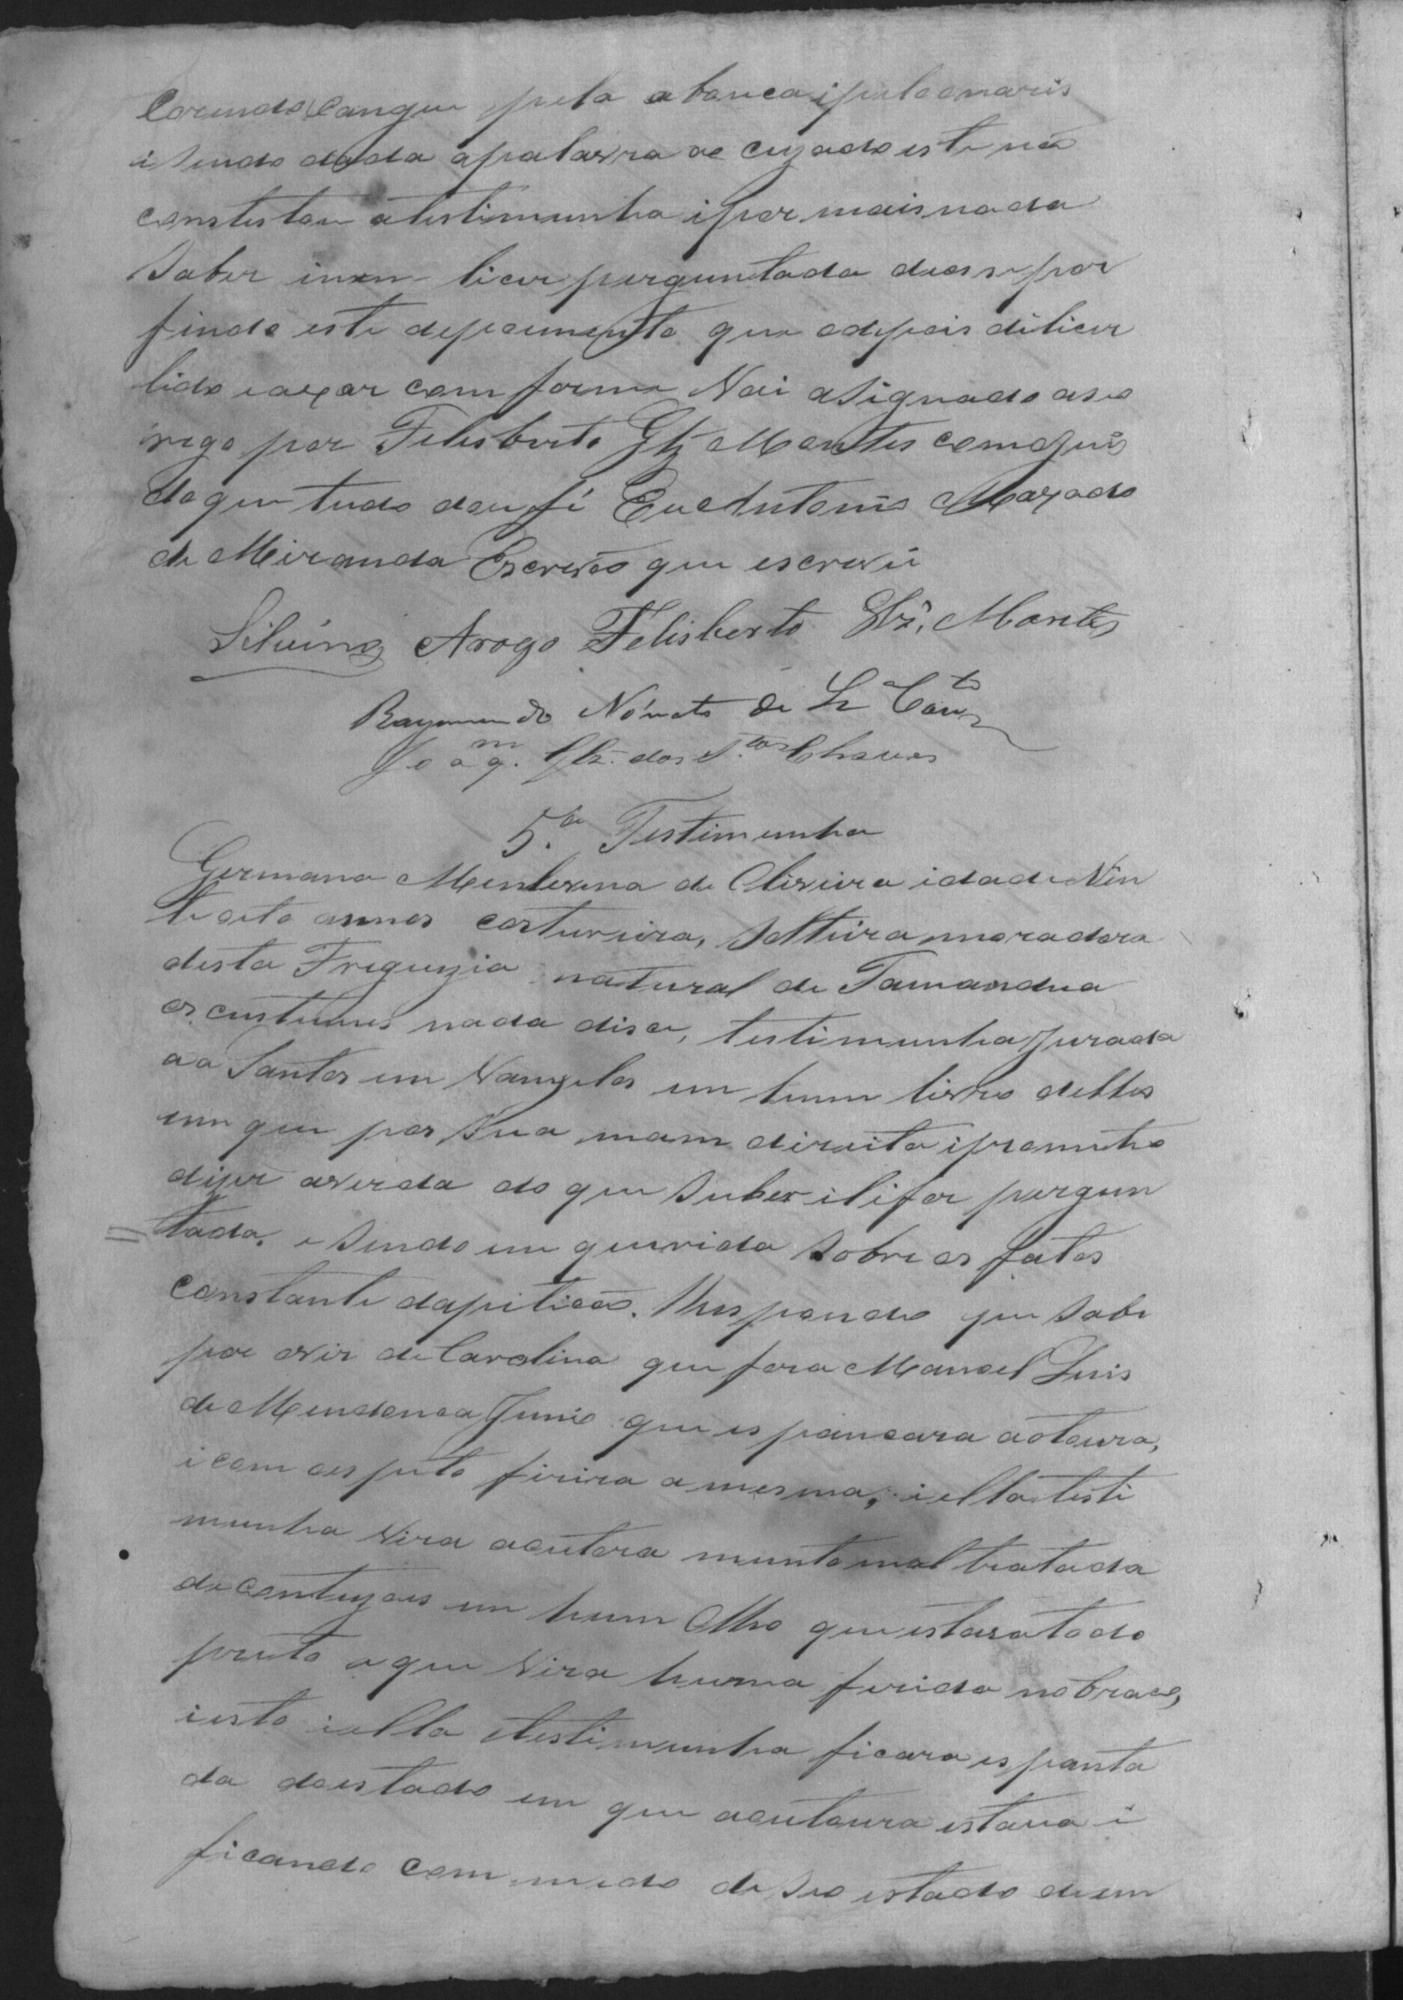 Corendo Cangue pela abouca ipulo naris
i Sendo dada apalavra ao cuzado este não
constestou atestimunha ipor mais nada
Saber inem licer perguntada deose por
findo este depoumento que adepois dilicer
lido iaxar comforme Vai asignado aseo
rogo por Felisberto Glz Montes com o Juis
do que tudo dou fé Eu Antonio Maxado
de Miranda Escrivão que escrevi
Silvino Arogo Felisberto Glz. Montes
Raymundo Nónato de
Joaqm. dos S.tos Chaves
5.a Testimunha
Germana Menlerina de Oliveira idade Vin
te oito annos costureira, Solteira moradora
desta Freguezia natural de Tamandua
os custumes nada dise, testimunha Jurada
aos Santos em Vangelos em hum livro delles
em que pos Sua mam direita ipromuteo
dizer averda do que Suber ilifor pergun
tada. e Sendo em querida Sobre os fatos
constante dapiticão. Respondeo que Sabe
por ovir de Carolina que fora Manoel Luis
de Mendonca Junio que espancara aotoura,
icom oesputo firira amesma, iella testi
munha Vira aoutora munto mal tratada
do contuzois em hum Olho que estava todo
preto o que Vira huma ferida no braco,
iesto iella testimunha ficara espanta
da doestado em que aoutoura estava i
ficando com medo de Seo estado deum